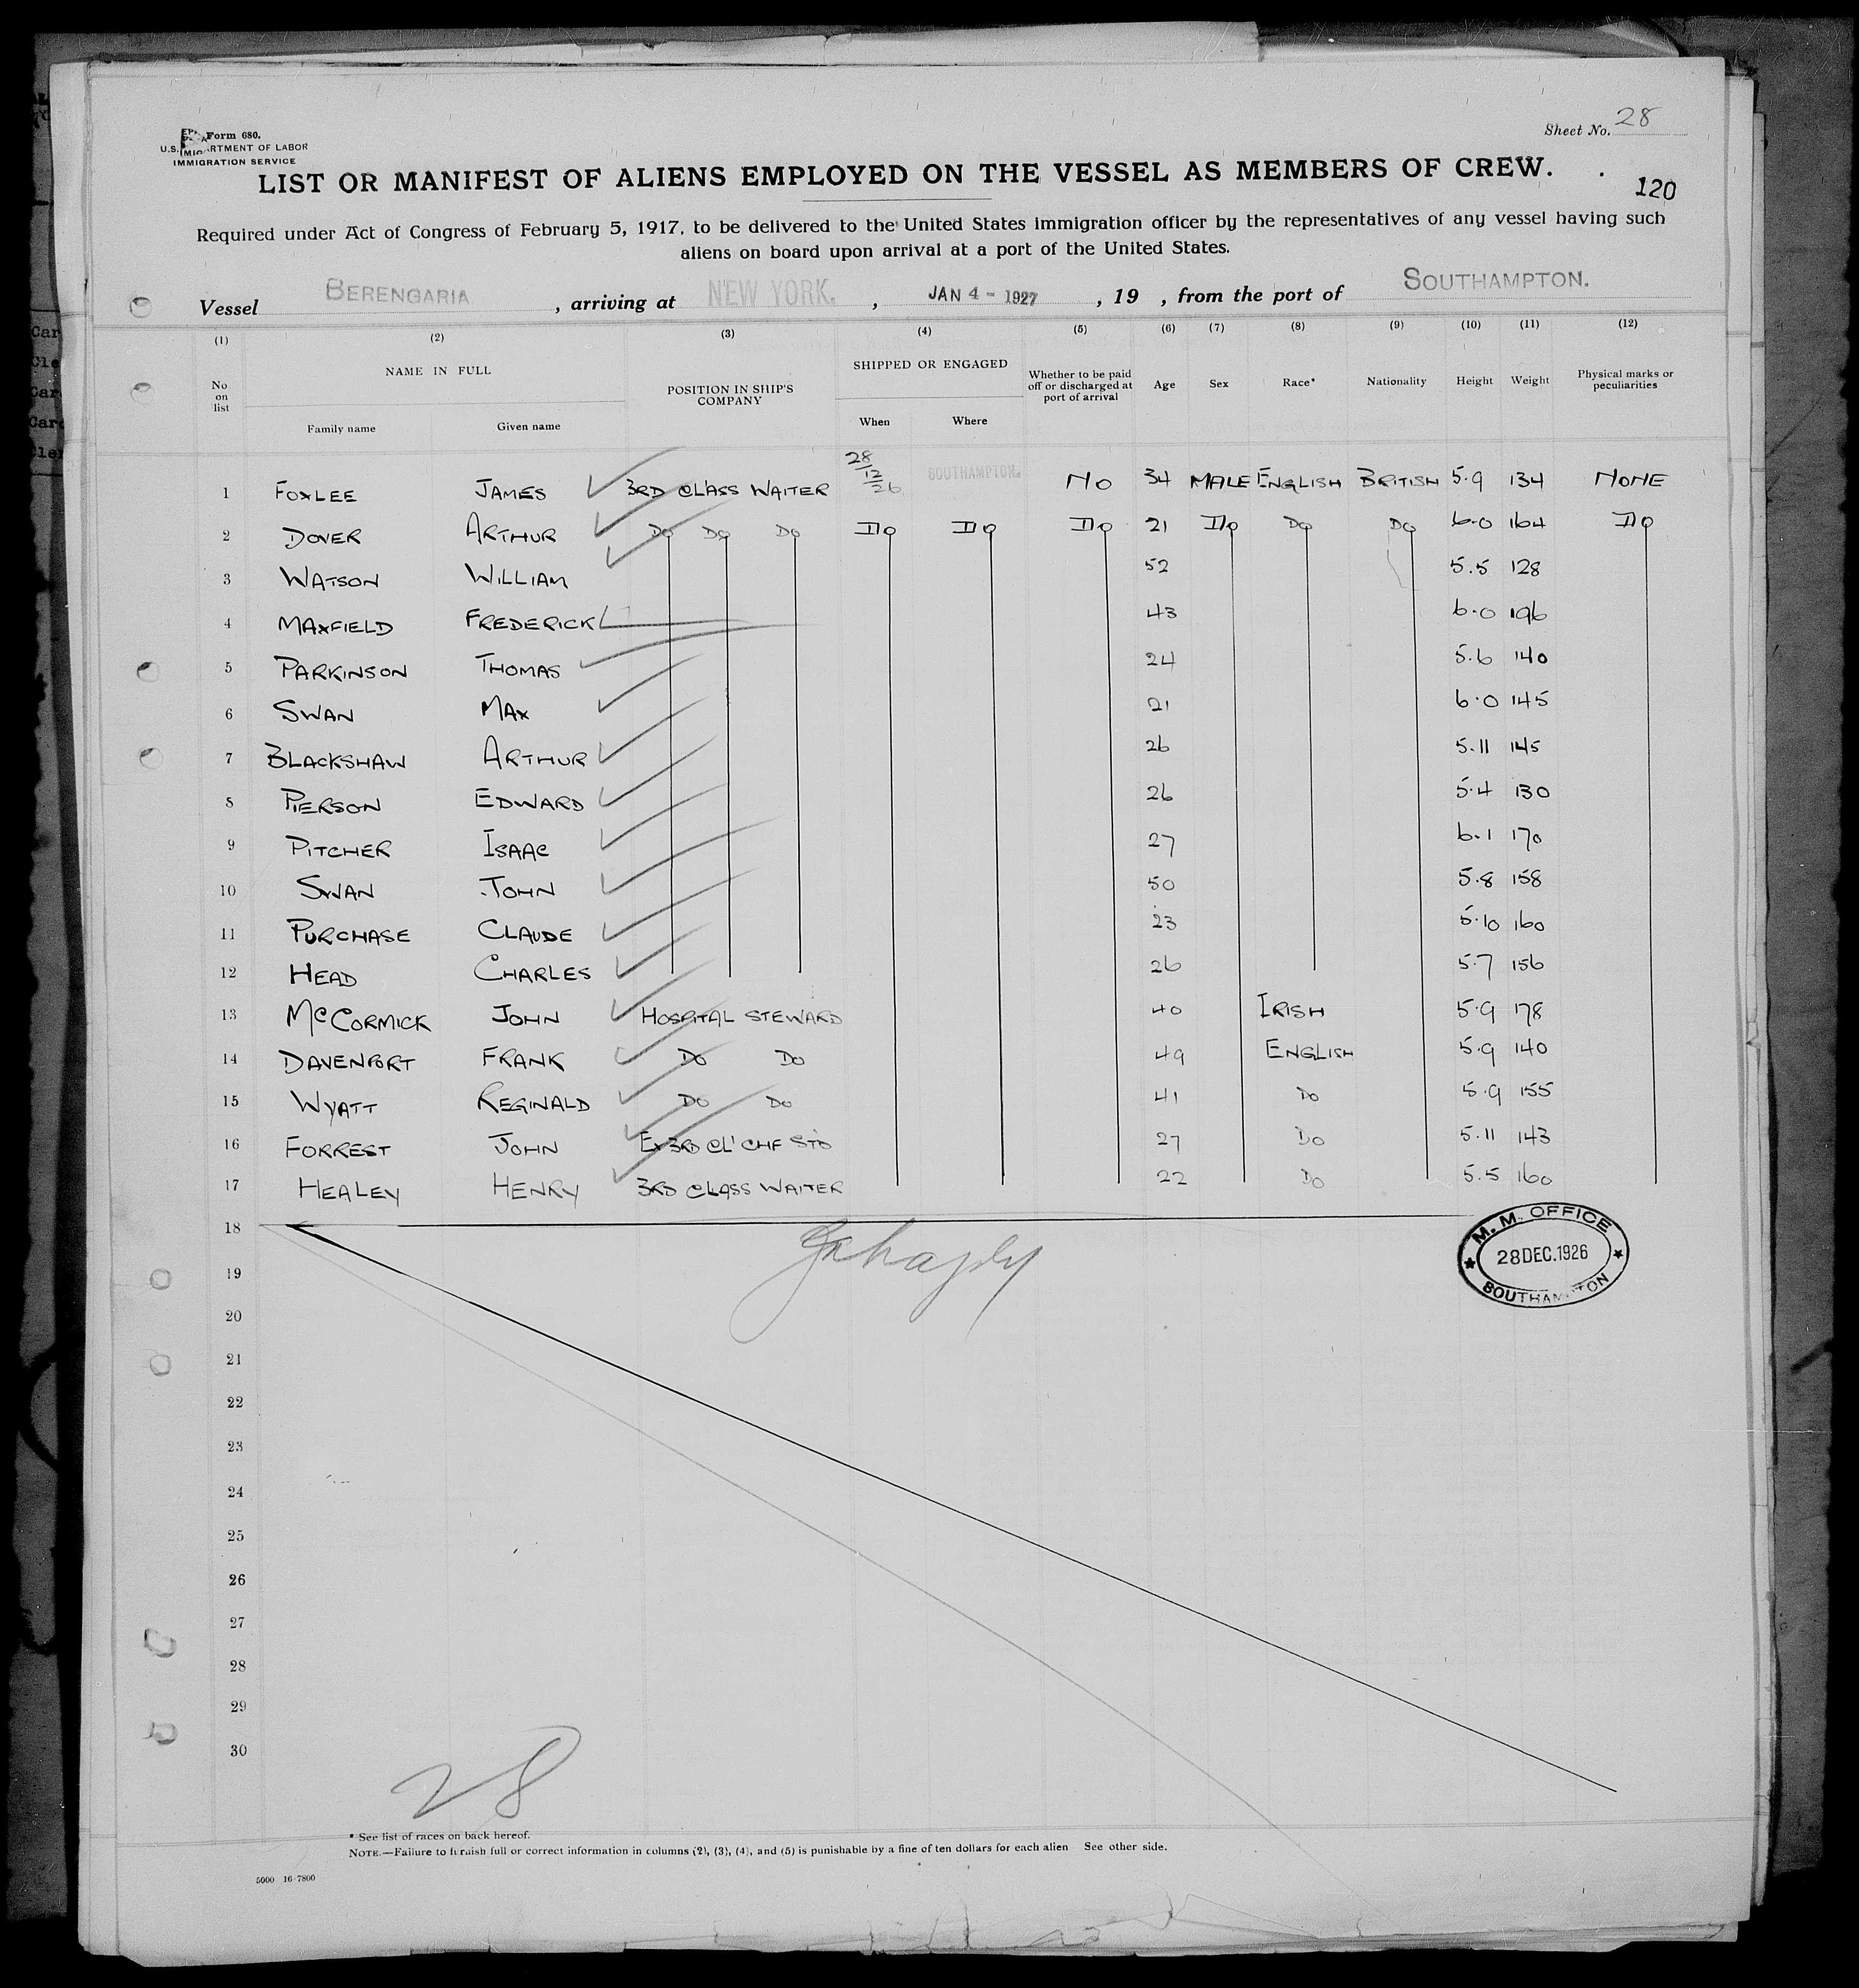 Form 680.
U.S. DEPARTMENT OF LABOR
IMMIGRATION SERVICE
Sheet No. 28
LIST OR MANIFEST OF ALIENS EMPLOYED ON THE VESSEL AS MEMBERS OF CREW.
120
Required under Act of Congress of February 5, 1917, to be delivered to the United States immigration officer by the representatives of any vessel having such
aliens on board upon arrival at a port of the United States.
Vessel BERENGARIA , arriving at NEW YORK. , JAN 4 - 1927 , 19 , from the port of SOUTHAMPTON.
(1) (2) (3) (4) (5) (6) (7) (8) (9) (10) (11) (12)
No on list NAME IN FULL POSITION IN SHIP'S COMPANY SHIPPED OR ENGAGED Whether to be paid off or discharged at port of arrival Age Sex Race* Nationality Height Weight Physical marks or peculiarities
Family name Given name When Where
1 FOXLEE JAMES 3RD CLASS WAITER 28/12/26 SOUTHAMPTON. NO 34 MALE ENGLISH BRITISH 5.9 134 NONE
2 DOVER ARTHUR DO DO DO DO DO DO 21 DO DO DO 6.0 164 DO
3 WATSON WILLIAM 52 5.5 128
4 MAXFIELD FREDERICK 43 6.0 196
5 PARKINSON THOMAS 24 5.6 140
6 SWAN MAX 21 6.0 145
7 BLACKSHAW ARTHUR 26 5.11 145
8 PIERSON EDWARD 26 5.4 130
9 PITCHER ISAAC 27 6.1 170
10 SWAN JOHN 50 5.8 158
11 PURCHASE CLAUDE 23 5.10 160
12 HEAD CHARLES 26 5.7 156
13 McCORMICK JOHN HOSPITAL STEWARD 40 IRISH 5.9 178
14 DAVENPORT FRANK DO DO 49 ENGLISH 5.9 140
15 WYATT REGINALD DO DO 41 DO 5.9 155
16 FORREST JOHN EX 3RD CL' CHF STD 27 DO 5.11 143
17 HEALEY HENRY 3RD CLASS WAITER 22 DO 5.5 160
18
M. M. OFFICE
28 DEC. 1926
SOUTHAMPTON
19
20
21
22
23
24
25
26
27
28
29
30
28
* See list of races on back hereof.
NOTE.—Failure to furnish full or correct information in columns (2), (3), (4), and (5) is punishable by a fine of ten dollars for each alien See other side.
5000 16-7800